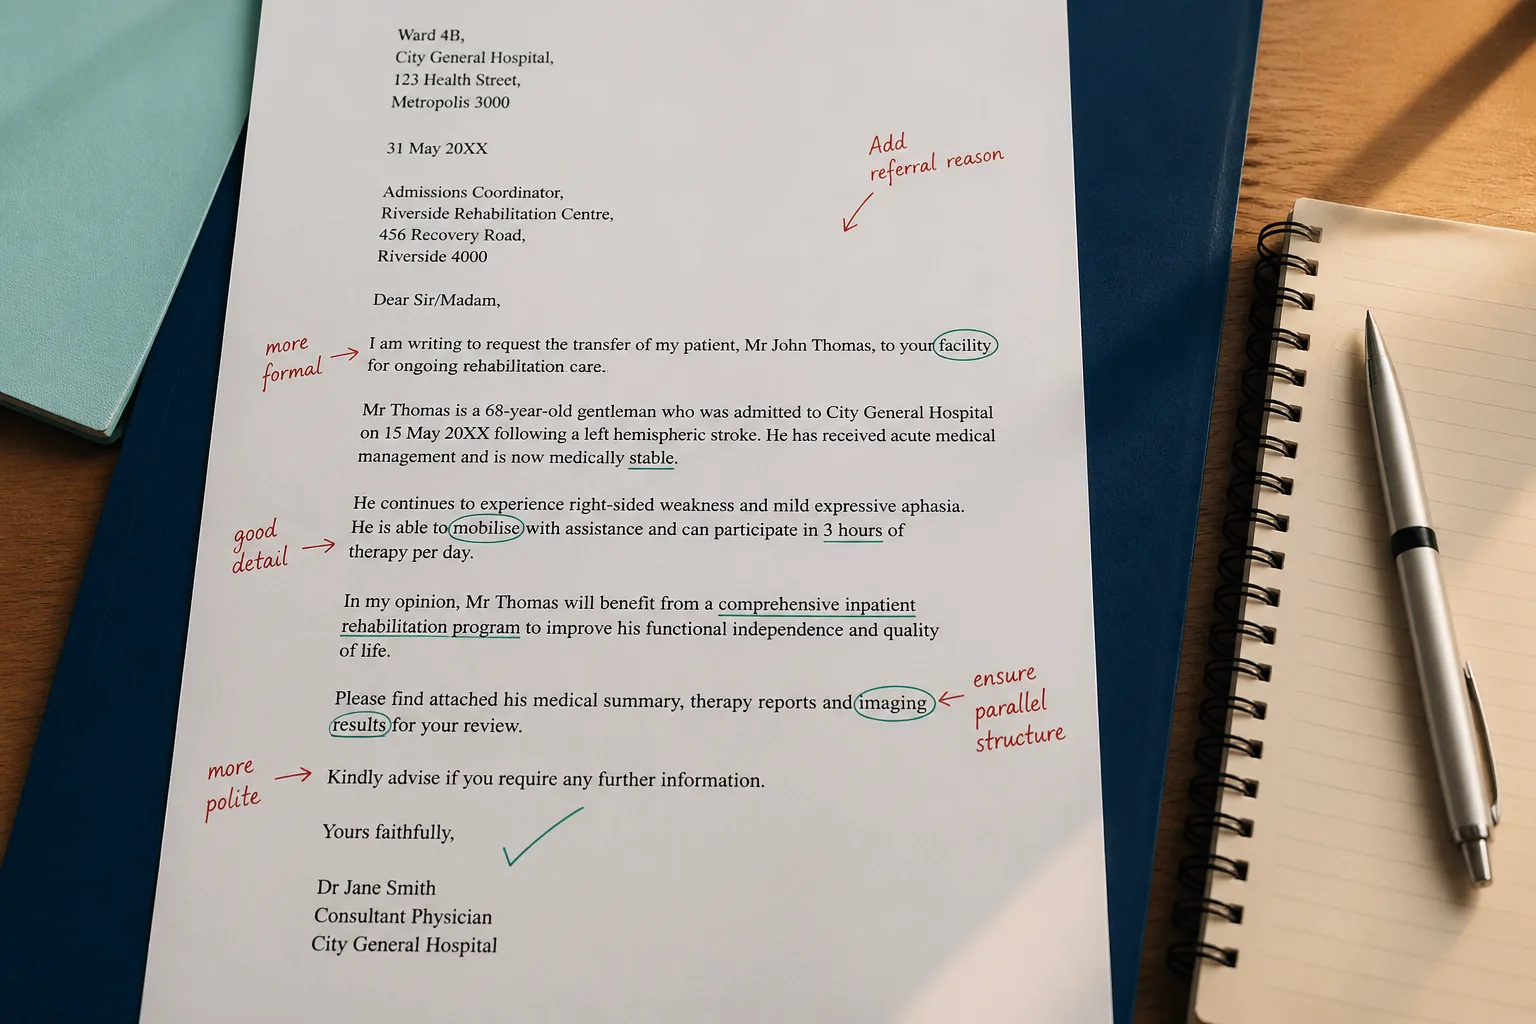 Ward 4B,
City General Hospital,
123 Health Street,
Metropolis 3000
31 May 20XX
Add
referral reason
Admissions Coordinator,
Riverside Rehabilitation Centre,
456 Recovery Road,
Riverside 4000
Dear Sir/Madam,
more
formal
I am writing to request the transfer of my patient, Mr John Thomas, to your facility
for ongoing rehabilitation care.
Mr Thomas is a 68-year-old gentleman who was admitted to City General Hospital
on 15 May 20XX following a left hemispheric stroke. He has received acute medical
management and is now medically stable.
He continues to experience right-sided weakness and mild expressive aphasia.
He is able to mobilise with assistance and can participate in 3 hours of
therapy per day.
good
detail
In my opinion, Mr Thomas will benefit from a comprehensive inpatient
rehabilitation program to improve his functional independence and quality
of life.
Please find attached his medical summary, therapy reports and imaging
results for your review.
ensure
parallel
structure
more
polite
Kindly advise if you require any further information.
Yours faithfully,
Dr Jane Smith
Consultant Physician
City General Hospital